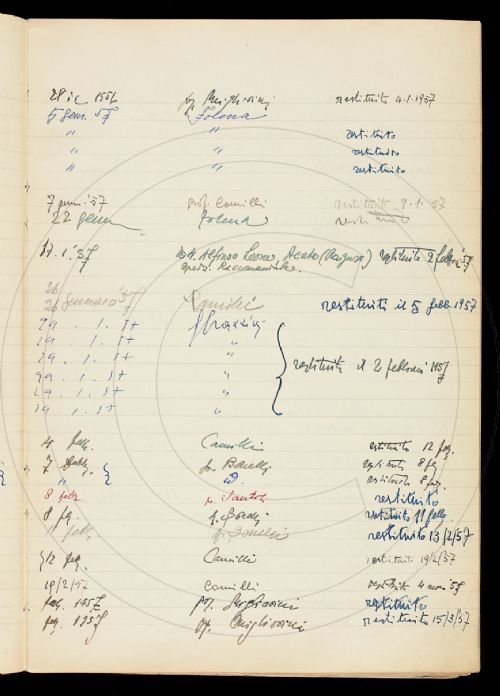 28 dic 1956 prof. Migliorini restituito 4.1.1957
5 genn. 57 Folena
" " restituito
" " restituito
" " restituito
7 genn. '57 prof. Camilli restituito 9.1.57
22 genn Folena restituito
Dott. Alfonso Leone, Acate (Ragusa) restituito 2 febbr. '57
spediz. Raccomandata.
26
26 gennaio '57 Camilli restituiti il 5 febb. 1957
29 . 1 . 57
29 . 1 . 57 "
29 . 1 . 57 " restituiti il 2 febbraio 1957
29 . 1 . 57 "
29 . 1 . 57 "
29 . 1 . 57 "
4 febb. Camilli restituito 12 feb.
7 febb. restituito 8 feb.
" id. restituito 8 feb.
8 febb. restituito
8 feb. restituito 11 febb.
11 febb. restituito 13/2/57
12 feb. Camilli restituito 19/2/57
19/2/57 Camilli restituito 4 mar. 57
feb. 1957 prof. Migliorini restituito
feb. 1957 prof. Migliorini restituito 15/3/57